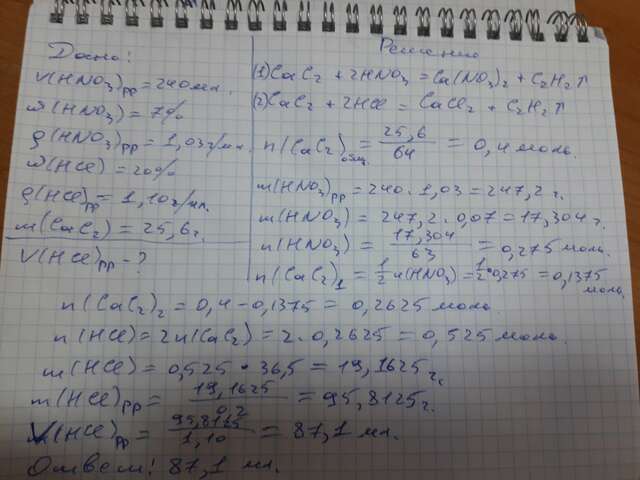 Дано:
V(HNO3)рр = 240 мл.
ω(HNO3) = 7%
ρ(HNO3)рр = 1,03 г/мл.
ω(HCl) = 20%
ρ(HCl)рр = 1,10 г/мл.
m(CaC2) = 25,6 г.
V(HCl)рр - ?
Решение
(1) CaC2 + 2HNO3 = Ca(NO3)2 + C2H2↑
(2) CaC2 + 2HCl = CaCl2 + C2H2↑
n(CaC2)общ. = 25,6/64 = 0,4 моль.
m(HNO3)рр = 240 · 1,03 = 247,2 г.
m(HNO3) = 247,2 · 0,07 = 17,304 г.
n(HNO3) = 17,304/63 = 0,275 моль.
n(CaC2)1 = 1/2 n(HNO3) = 1/2 · 0,275 = 0,1375 моль.
n(CaC2)2 = 0,4 - 0,1375 = 0,2625 моль.
n(HCl) = 2n(CaC2) = 2 · 0,2625 = 0,525 моль.
m(HCl) = 0,525 · 36,5 = 19,1625 г.
m(HCl)рр = 19,1625/0,2 = 95,8125 г.
V(HCl)рр = 95,8125/1,10 = 87,1 мл.
Ответ: 87,1 мл.